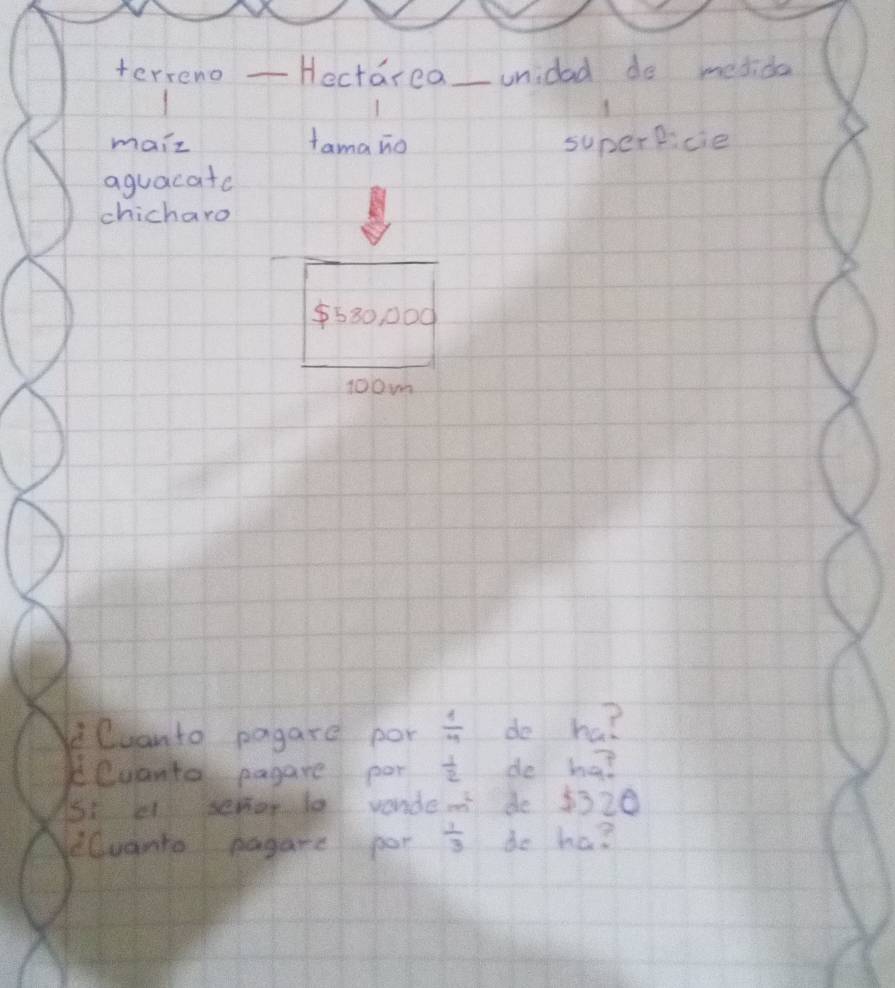 terreno — Hectárea — unidad de medida
maíz tamaño superficie
aguacate
chicharo
$580,000
100m
¿Cuanto pagare por 1/4 de ha?
¿Cuanto pagare por 1/2 de ha?
Si el señor lo vende m² de $320
¿Cuanto pagare por 1/3 de ha?